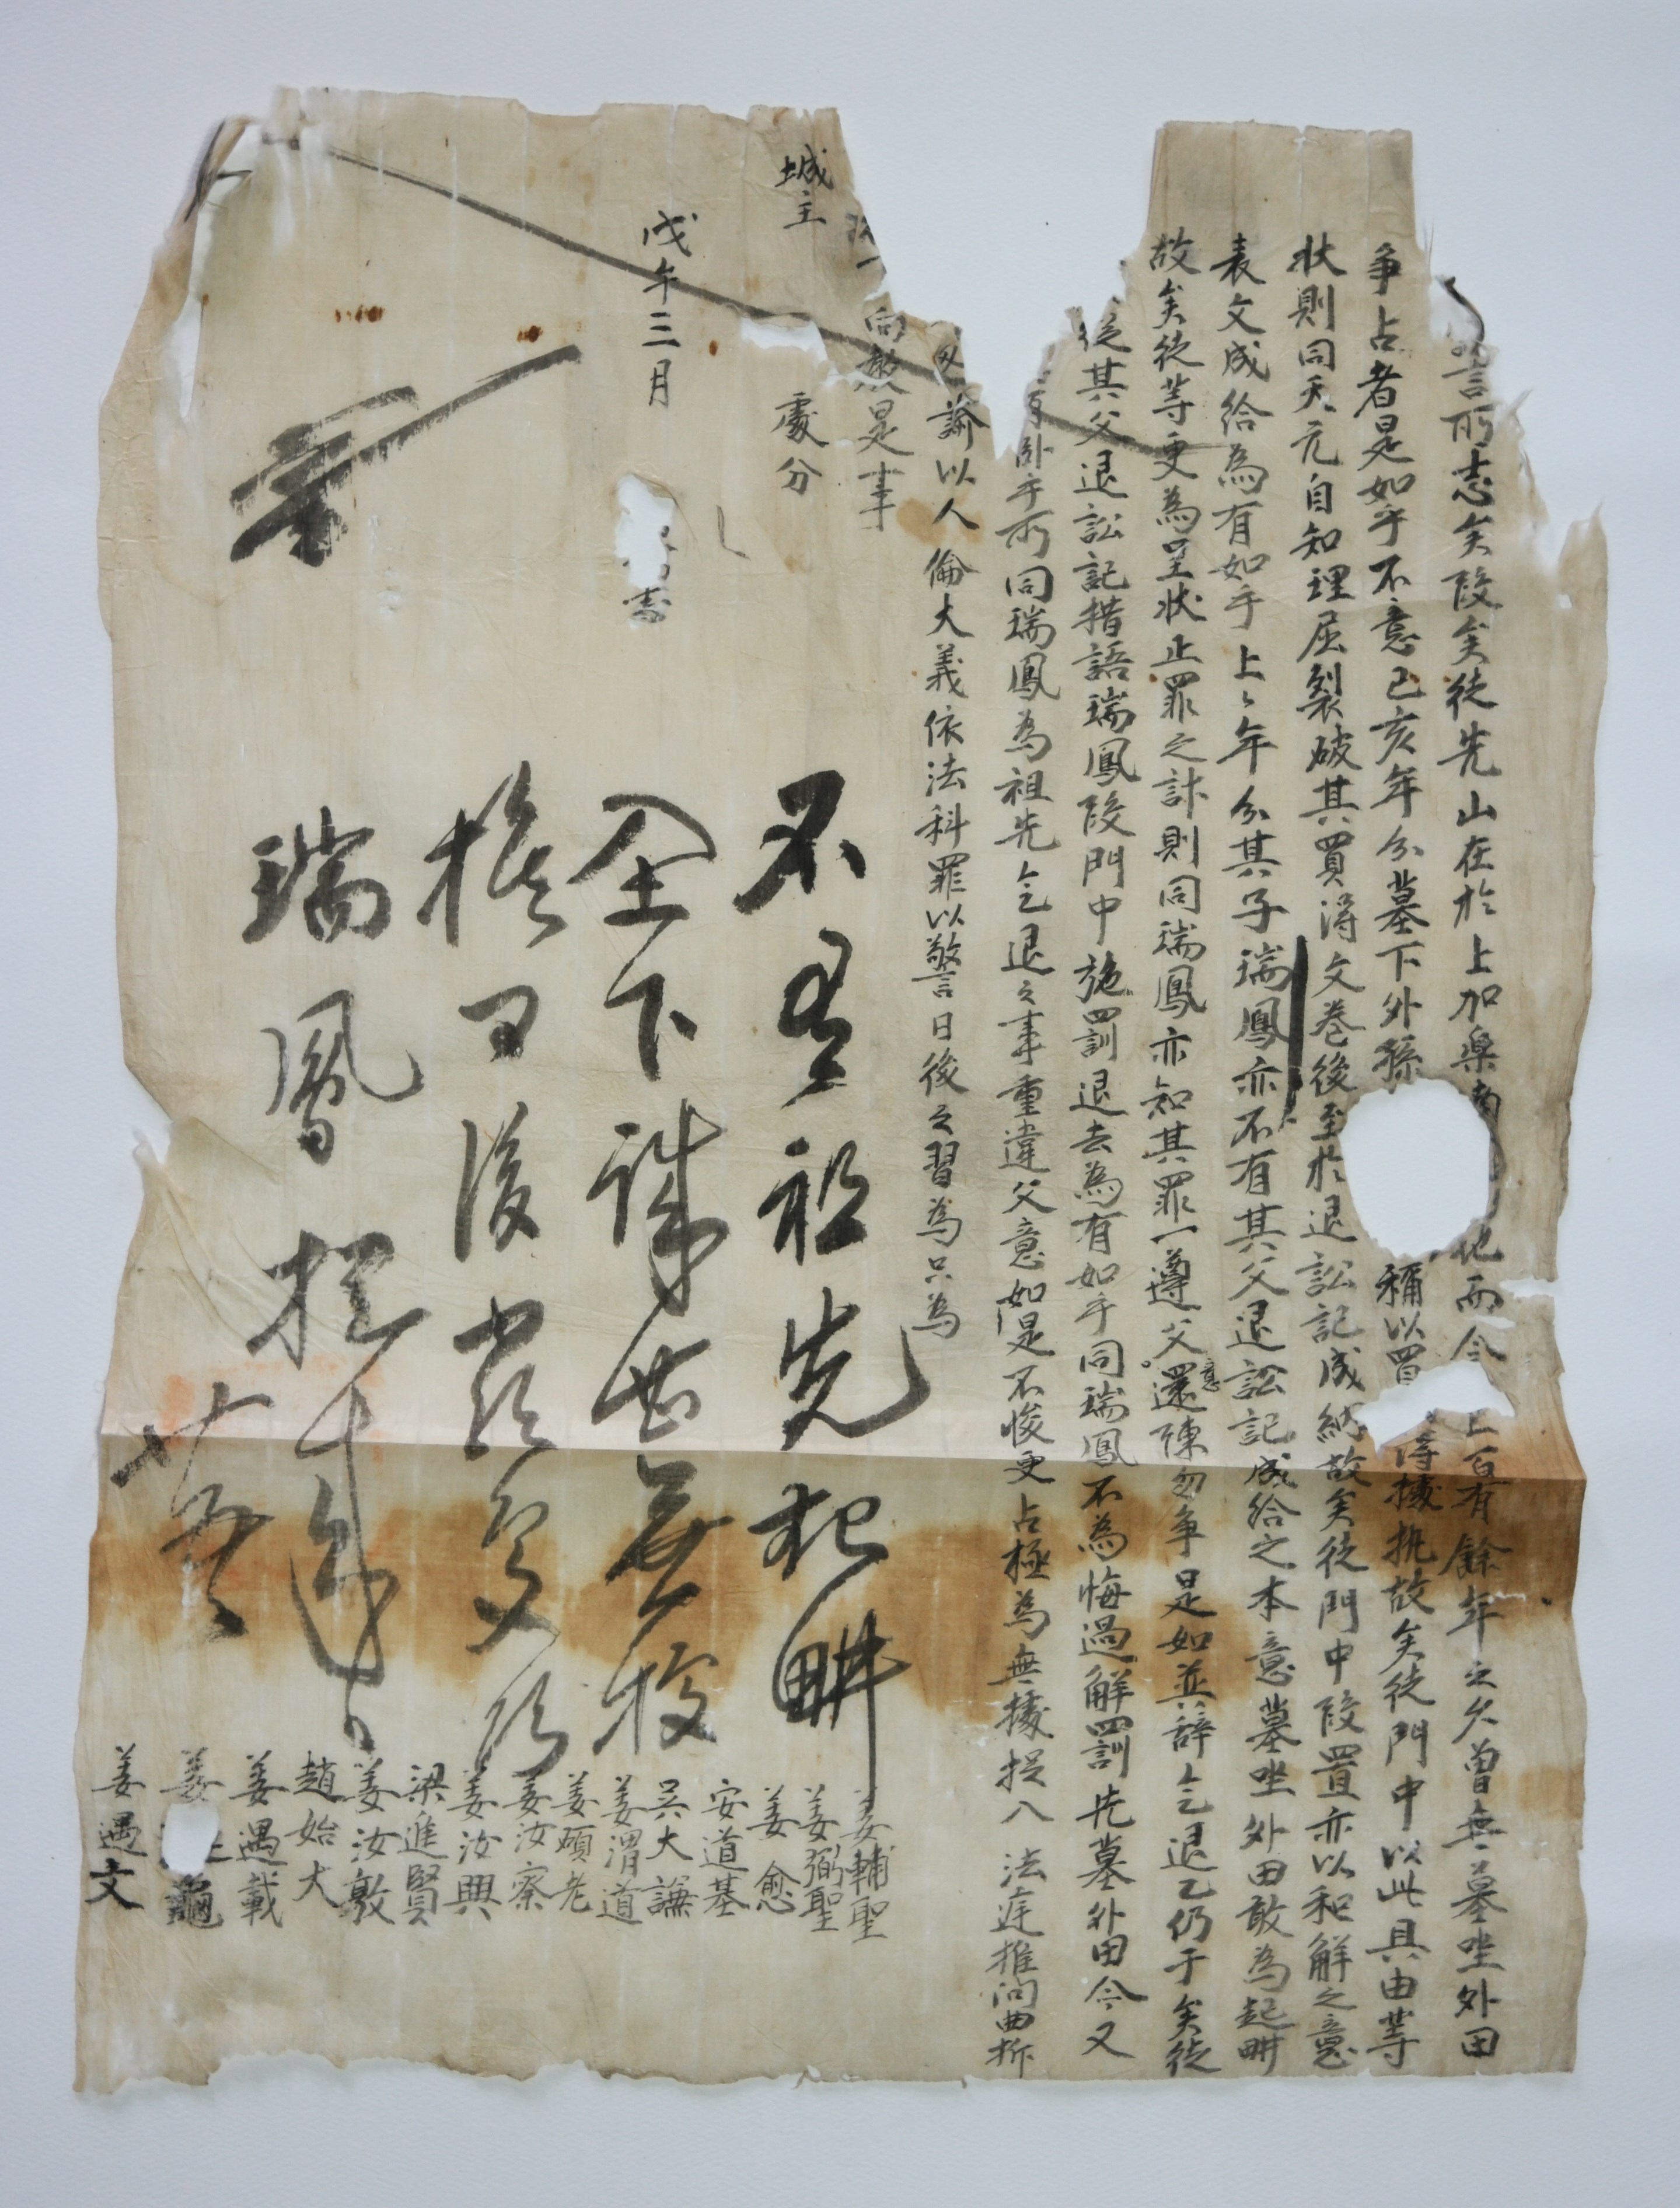 言所志矣段矣徒先山在於上加樂 地而今 上百有餘年之久曾無墓坐外田
爭占者是如乎不意己亥年分墓下外孫 稱以買得據執故矣徒門中以此具由等
狀則同天元自知理屈裂破其買得文卷後至於退訟記成納故矣徒門中段置亦以和解之意
表文成給為有如乎上ヽ年分其子瑞鳳亦不有其父退訟記成給之本意墓坐外田敢為起畊
故矣徒等更為呈狀止罪之計則同瑞鳳亦知其罪一遵父意還陳勿爭是如並辞乞退乙仍于矣徒
從其父退訟記措語瑞鳳段門中施罰退去為有如乎同瑞鳳不為悔過解罰先墓外田今又
卧乎所同瑞鳳為祖先乞退之事重違父意如是不悛更占極為無據揆八法庭推問曲折
諭以人倫大義依法科罪以警日後之習為只為
向教是事
城主 處分
戊午三月 志
姜輔聖
姜弼聖
姜愈
安道基
吳大謙
姜渭道
姜碩老
姜汝察
姜汝興
梁進賢
姜汝敦
趙始大
姜遇載
姜 龜
姜遇文
不有祖先犯畊
全下誅 無
後
瑞鳳捉
廿五